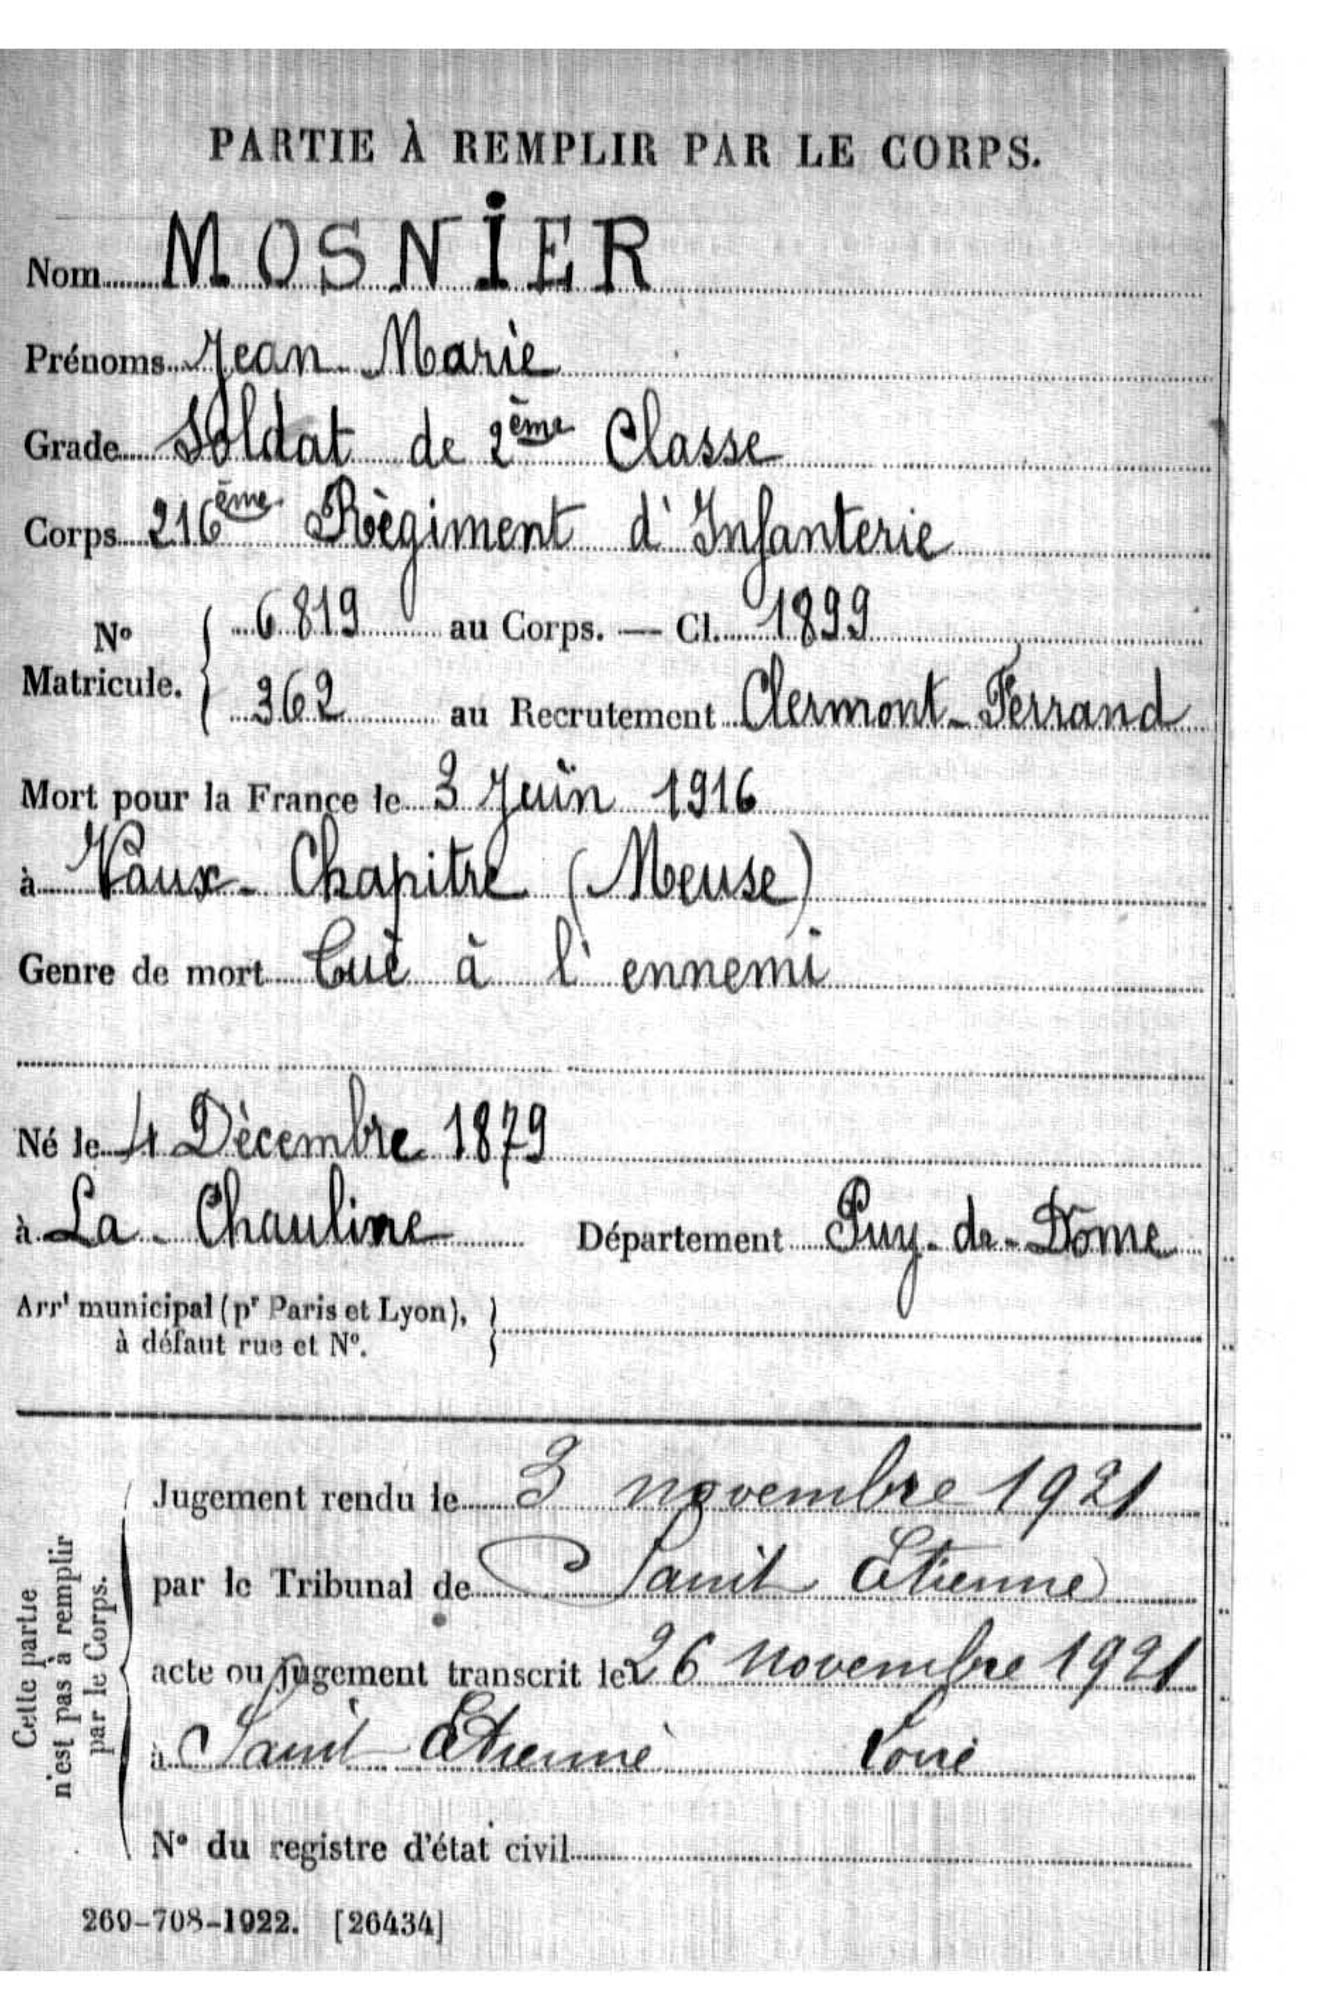 PARTIE À REMPLIR PAR LE CORPS.
Nom MOSNIER
Prénoms Jean Marie
Grade Soldat de 2ème Classe
Corps 216ème Règiment d'Infanterie
No Matricule. 6819 au Corps. — Cl. 1899
362 au Recrutement Clermont-Ferrand
Mort pour la France le 3 Juin 1916
à Vaux-Chapitre (Meuse)
Genre de mort Tuè à l'ennemi
Né le 4 Dècembre 1879
à La Chauline Département Puy-de-Dome
Arrt municipal (pr Paris et Lyon),
à défaut rue et No.
Cette partie
n'est pas à remplir
par le Corps.
Jugement rendu le 3 novembre 1921
par le Tribunal de Saint Etienne
acte ou jugement transcrit le 26 novembre 1921
à Saint Etienne Loire
No du registre d'état civil
269-708-1922. [26434]